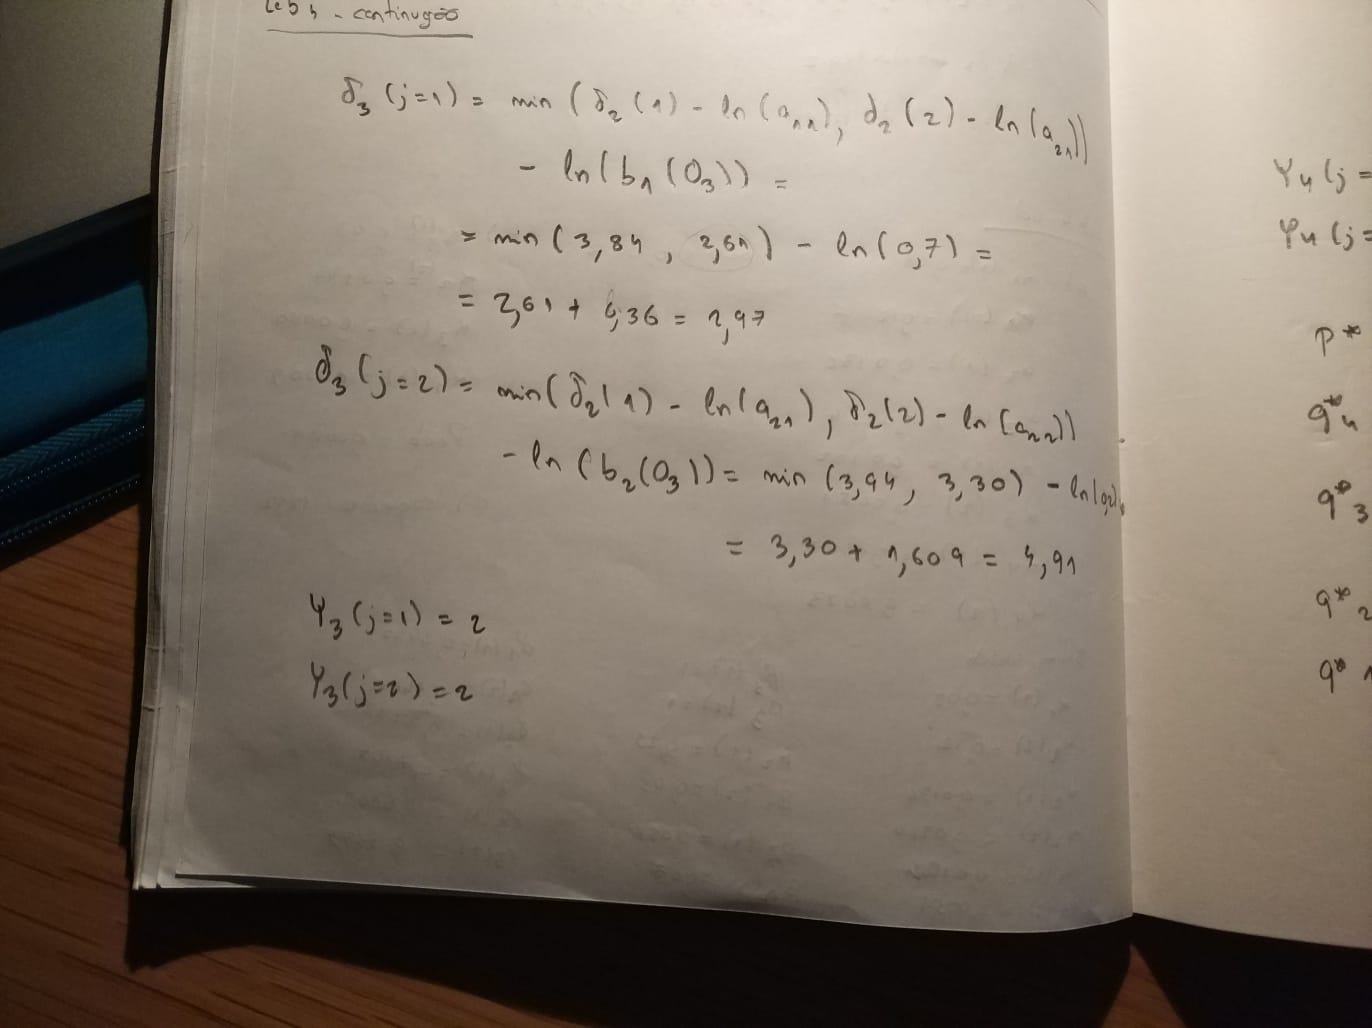 Lab 4 - continuação
δ₃ (j=1) = min (δ₂ (1) - ln (a₁₁), δ₂ (2) - ln (a₂₁))
- ln (b₁ (O₃)) =
= min (3,84 , 2,61) - ln (0,7) =
= 2,61 + 0,36 = 2,97
δ₃ (j=2) = min (δ₂(1) - ln (a₂₁), δ₂(2) - ln (a₂₂))
- ln (b₂(O₃)) = min (3,94, 3,30) - ln(0,2)
= 3,30 + 1,609 = 4,91
Ψ₃ (j=1) = 2
Ψ₃(j=2) = 2
Ψ₄ (j =
Ψ₄ (j =
p*
q*₄
q*₃
q*₂
q*₁